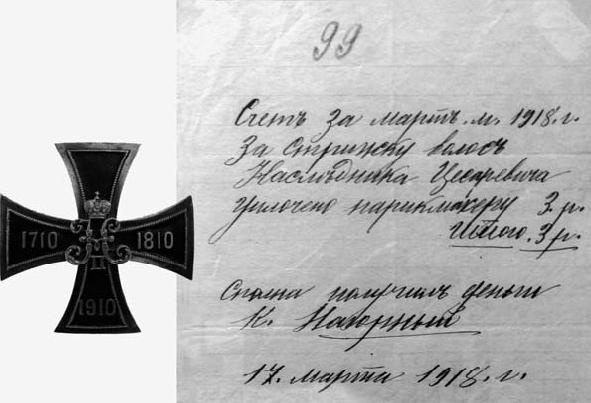 1710
1810
1910
99
Счетъ за мартъ. м. 1918. г.
За стрижку волосъ
Наслѣдника Цесаревича
уплочено парикмахеру 3. р.
Итого. 3 р.
получилъ деньги
К. Нагорный
17. марта 1918. г.